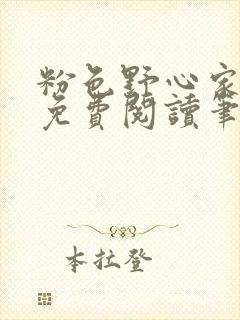 粉色野心家
免費閱讀筆
本拉登